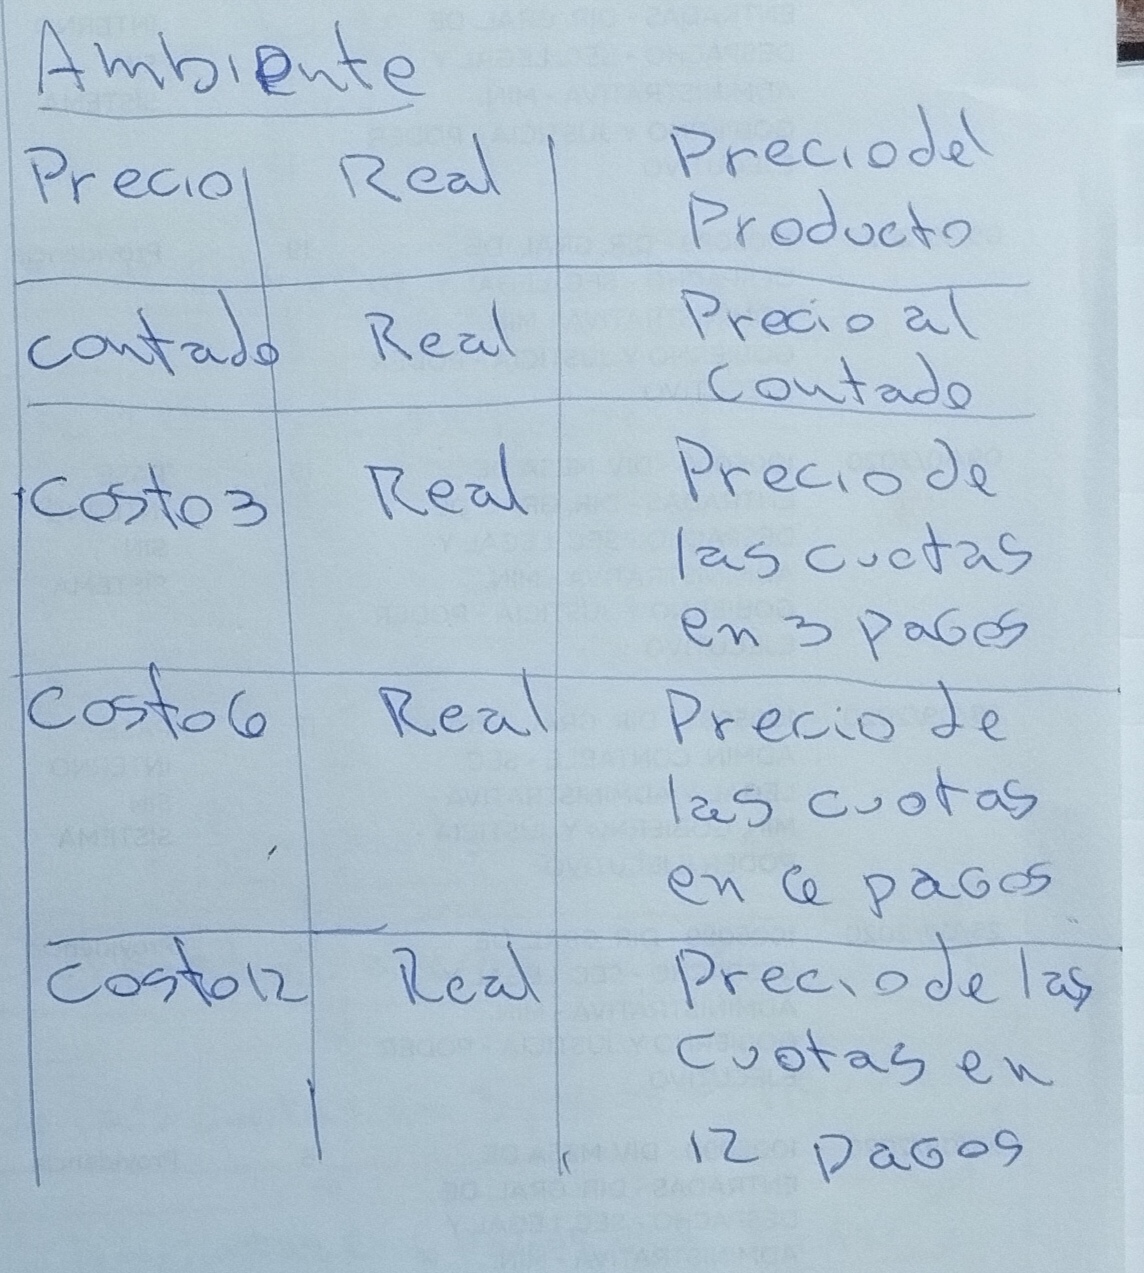 Ambiente
Precio Real Precio del
Producto
contado Real Precio al
Contado
Costo3 Real Precio de
las cuotas
en 3 pagos
Costo6 Real Precio de
las cuotas
en 6 pagos
Costo12 Real Precio de las
cuotas en
12 pagos